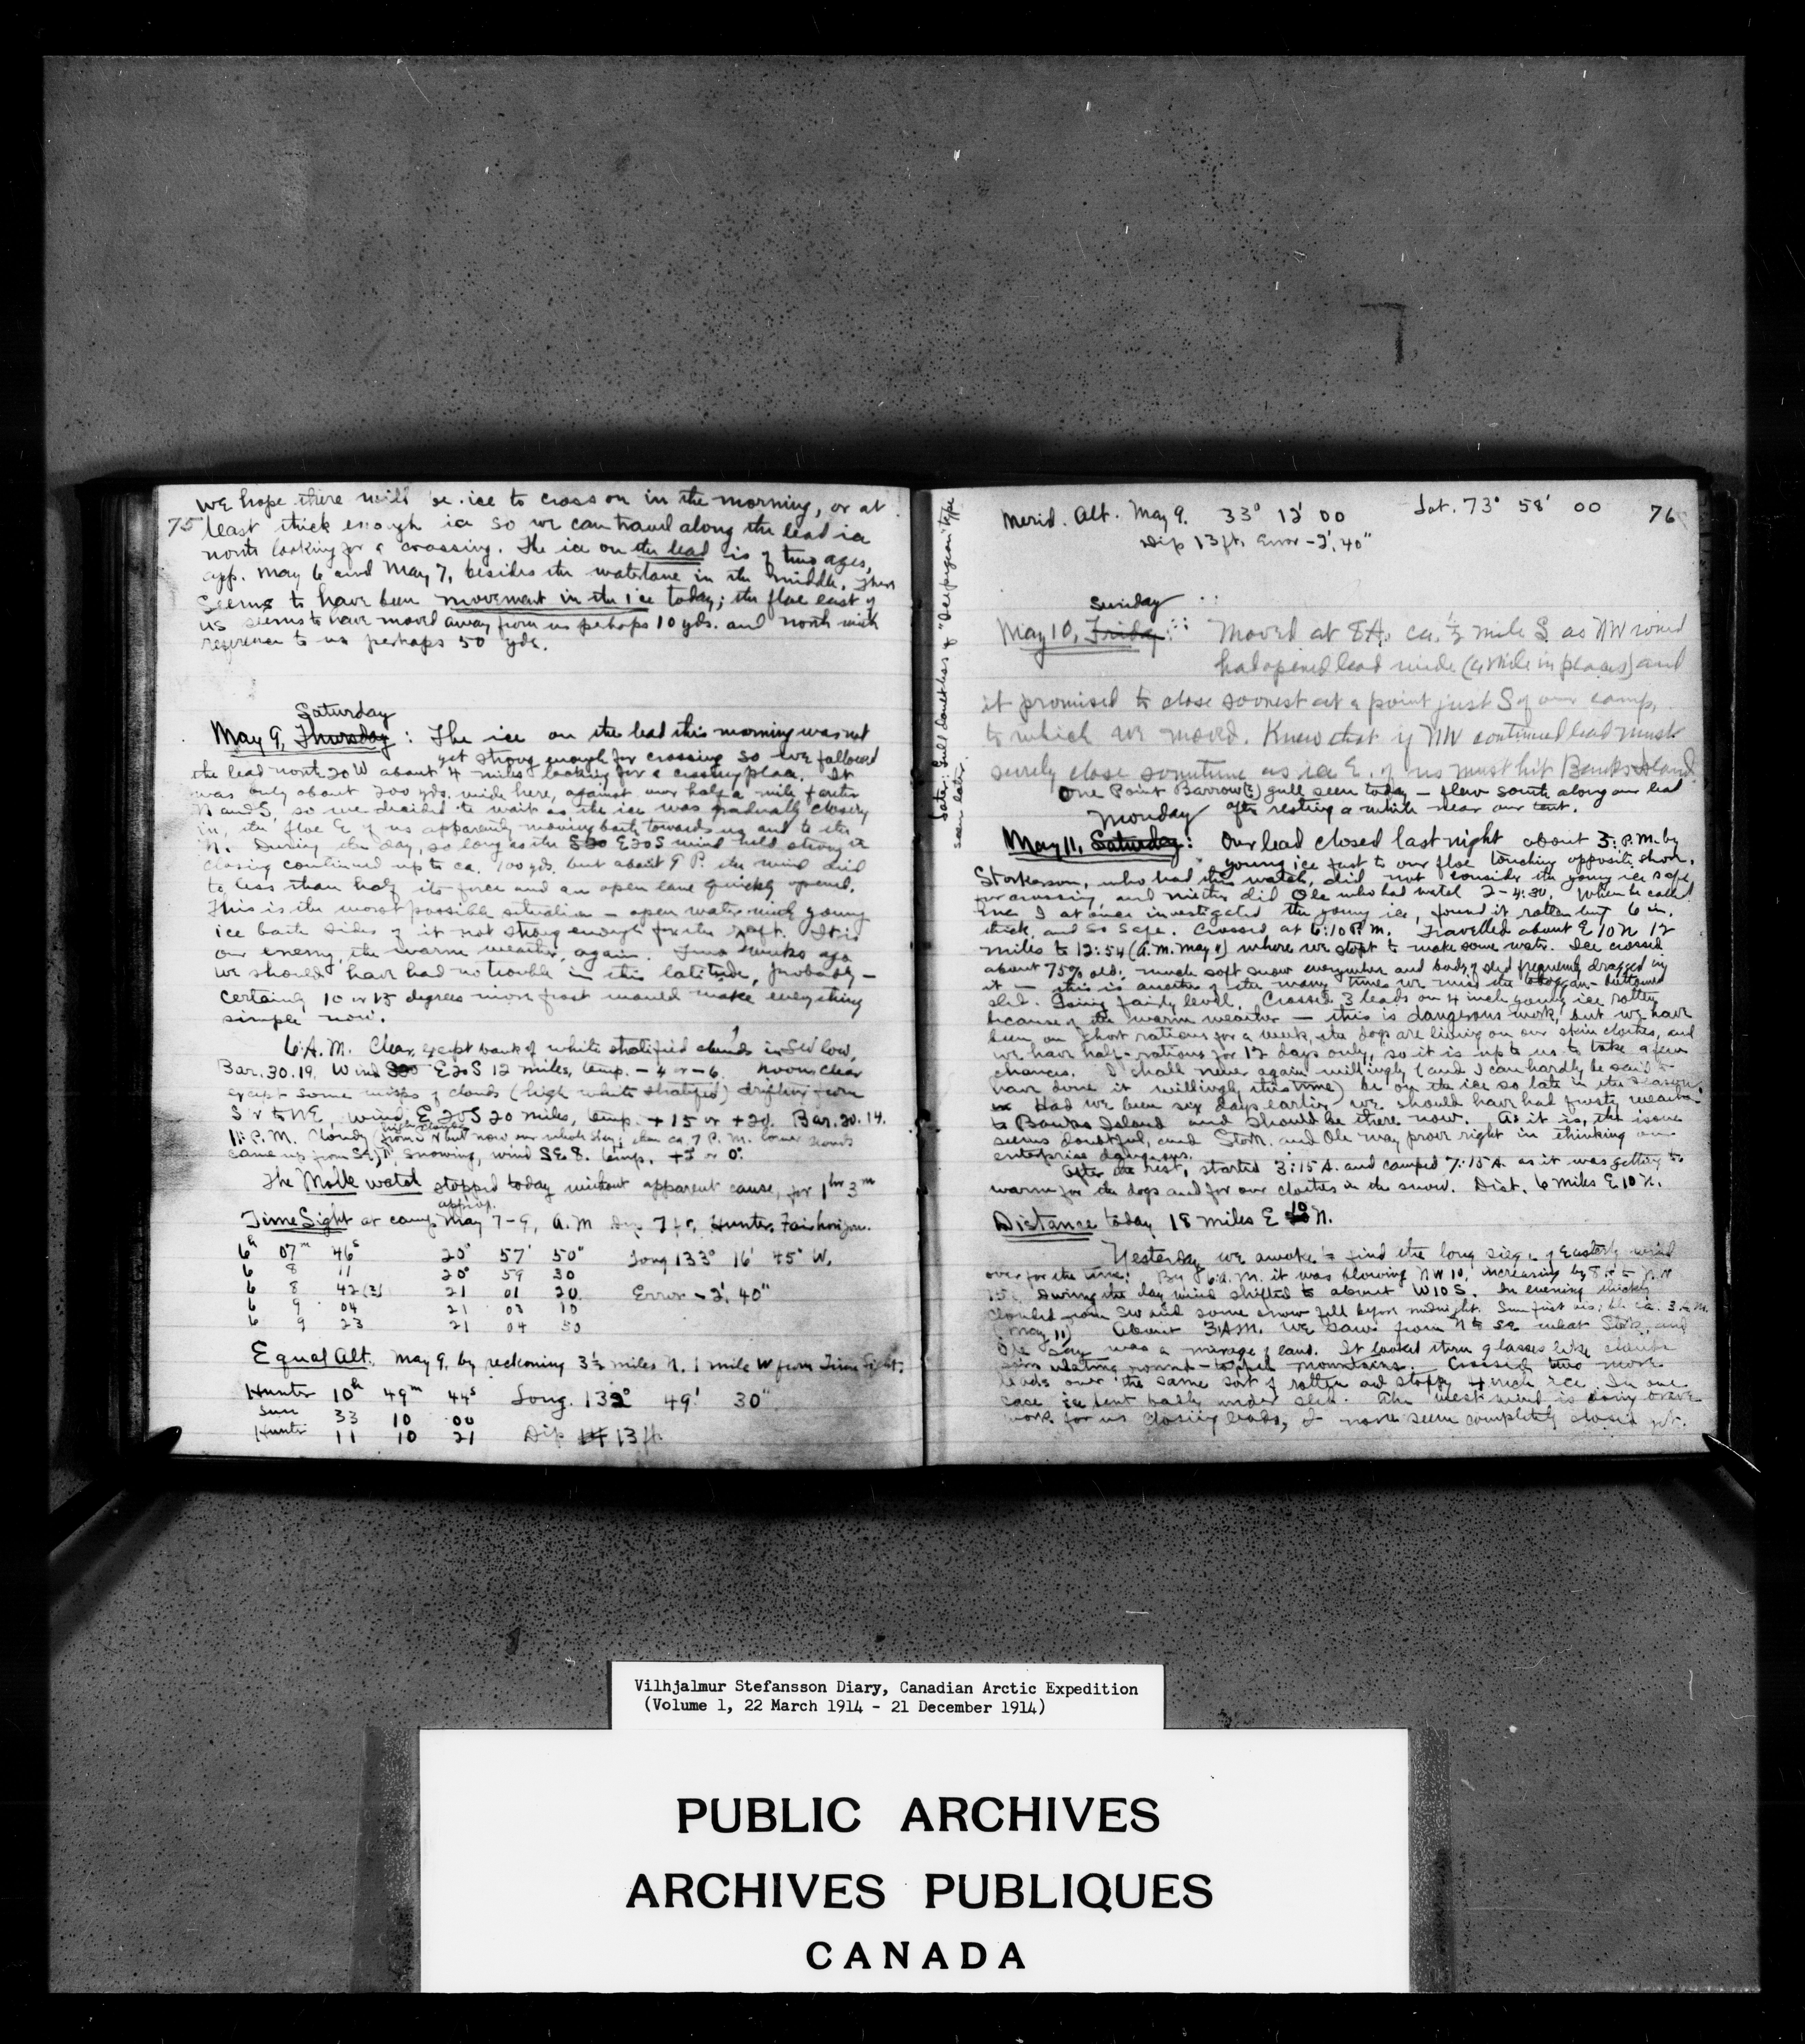 We hope there will be ice to cross on in the morning, or at
75 least thick enough ice so we can travel along the lead ice
north looking for a crossing. The ice on the lead is of two ages,
app. May 6 and May 7, besides the waterlane in the middle. There
seems to have been movement in the ice today; the floe east of
us seems to have moved away from us perhaps 10 yds. and north with
reference to us perhaps 50 yds.
Saturday
May 9, Thursday: The ice on the lead this morning was not
yet strong enough for crossing so we followed
the lead north 20 W about 4 miles looking for a crossing place. It
was only about 200 yds. wide here, against over half a mile farther
N and S, so we decided to wait as the ice was gradually closing
in, the floe E of us apparently moving both towards us and to the
N. During the day, so long as the E20S wind held strong the
closing continued up to ca. 100 yds. but about 9 P. the wind died
to less than half its force and an open lane quickly opened.
This is the worst possible situation – open water with young
ice both sides of it not strong enough for the raft. It is
our enemy, the warm weather, again. Two weeks ago
we should have had no trouble in this latitude, probably –
certainly 10 or 15 degrees more frost would make everything
simple now.
6 A.M. Clear, except bank of white stratified clouds in SW low,
Bar. 30.19, Wind E20S 12 miles, temp. – 4 or – 6. Noon Clear
except some wisps of clouds (high white stratified) drifting from
S to NE, wind, E 20S 20 miles, temp. + 15 or + 20. Bar. 30.14.
high clouds
11: P.M. Cloudy from S but now over whole sky; then ca. 7 P.M. lower clouds
came up from SE), snowing, wind SE 8. temp. + 2 or 0.
The Molle watch stopped today without apparent cause, for 1hr 3m
approx.
Time Sight at camp May 7-9, A.M Dip 7 ft, Hunter, Fair horizon.
6h 07m 46s 20° 57' 50" Long 133° 16' 45" W.
6 8 11 20° 59 30
6 8 42(?) 21 01 20 Error – 2' 40"
6 9 04 21 03 10
6 9 23 21 04 50
Equal Alt. May 9, by reckoning 3½ miles N. 1 mile W from Time Sight.
Hunter 10h 49m 44s Long. 132° 49' 30"
Sun 33 10 00
Hunter 11 10 21 Dip 14 13 ft.
Later: Gull doubtless of "Deep pigeon" type
seen later.
Merid. Alt. May 9. 33° 12' 00 Lat. 73° 58' 00 76
Dip 13 ft. Error – 2' 40"
Sunday
May 10, Friday: Moved at 8 A. ca. ½ mile S. as NW wind
had opened lead wide (¼ mile in places) and
it promised to close soonest at a point just S of our camp,
to which we moved. Knew that if NW continued lead must
surely close sometime as ice E. of us must hit Banks Island.
One Point Barrow(?) gull seen today – flew south along our lead
after resting a while near our tent.
Monday
May 11, Saturday: Our lead closed last night about 3: P.M. by
young ice fast to our floe touching opposite shore.
Storkerson, who had this watch, did not consider the young ice safe
for crossing, and neither did Ole who had watch 2-4:30. When he called
me I at once investigated the young ice, found it rotten but 6 in.
thick, and so safe. Crossed at 6:10 P.M. Travelled about E 10 N 12
miles to 12:54 (A.M. May 11) where we stopt to make some water. Ice crossed
about 75% old; much soft snow everywhere and body of sled frequently dragged in
it – this is another of the many times we miss the toboggan-bottomed
sled. Going fairly level. Crossed 3 leads on 4 inch young ice rotten
because of the warm weather – this is dangerous work, but we have
been on short rations for a week, the dogs are living on our skin clothes, and
we have half-rations for 12 days only, so it is up to us to take a few
chances. I shall never again willingly (and I can hardly be said to
have done it willingly this time) be on the ice so late in the season.
Had we been six days earlier we should have had frosty weather
to Banks Island and should be there now. As it is, the issue
seems doubtful, and Stork. and Ole may prove right in thinking our
enterprise dangerous.
After the rest, started 3:15 A. and camped 7:15 A. as it was getting to
warm for the dogs and for our clothes in the snow. Dist. 6 miles E 10 N.
Distance today 18 miles E 10 N.
Yesterday we awoke to find the long siege of Easterly wind
over for the time. By 6 A.M. it was blowing NW 10, increasing by 8 to NW
15. During the day wind shifted to about W10S. In evening thickly
clouded from SW and some snow fell before midnight. Sun first visible ca. 3: A.M.
(May 11) About 3 A.M. we saw from N to SE what Stork. and
Ole say was a mirage of land. It looked thru glasses like clouds
simulating round-topped mountains. Crossed two more
leads over the same sort of rotten and sloppy 4 inch ice. In one
case ice bent badly under sled. The west wind is doing brave
work for us closing leads, tho none seem completely closed yet.
Vilhjalmur Stefansson Diary, Canadian Arctic Expedition
(Volume 1, 22 March 1914 - 21 December 1914)
PUBLIC ARCHIVES
ARCHIVES PUBLIQUES
CANADA